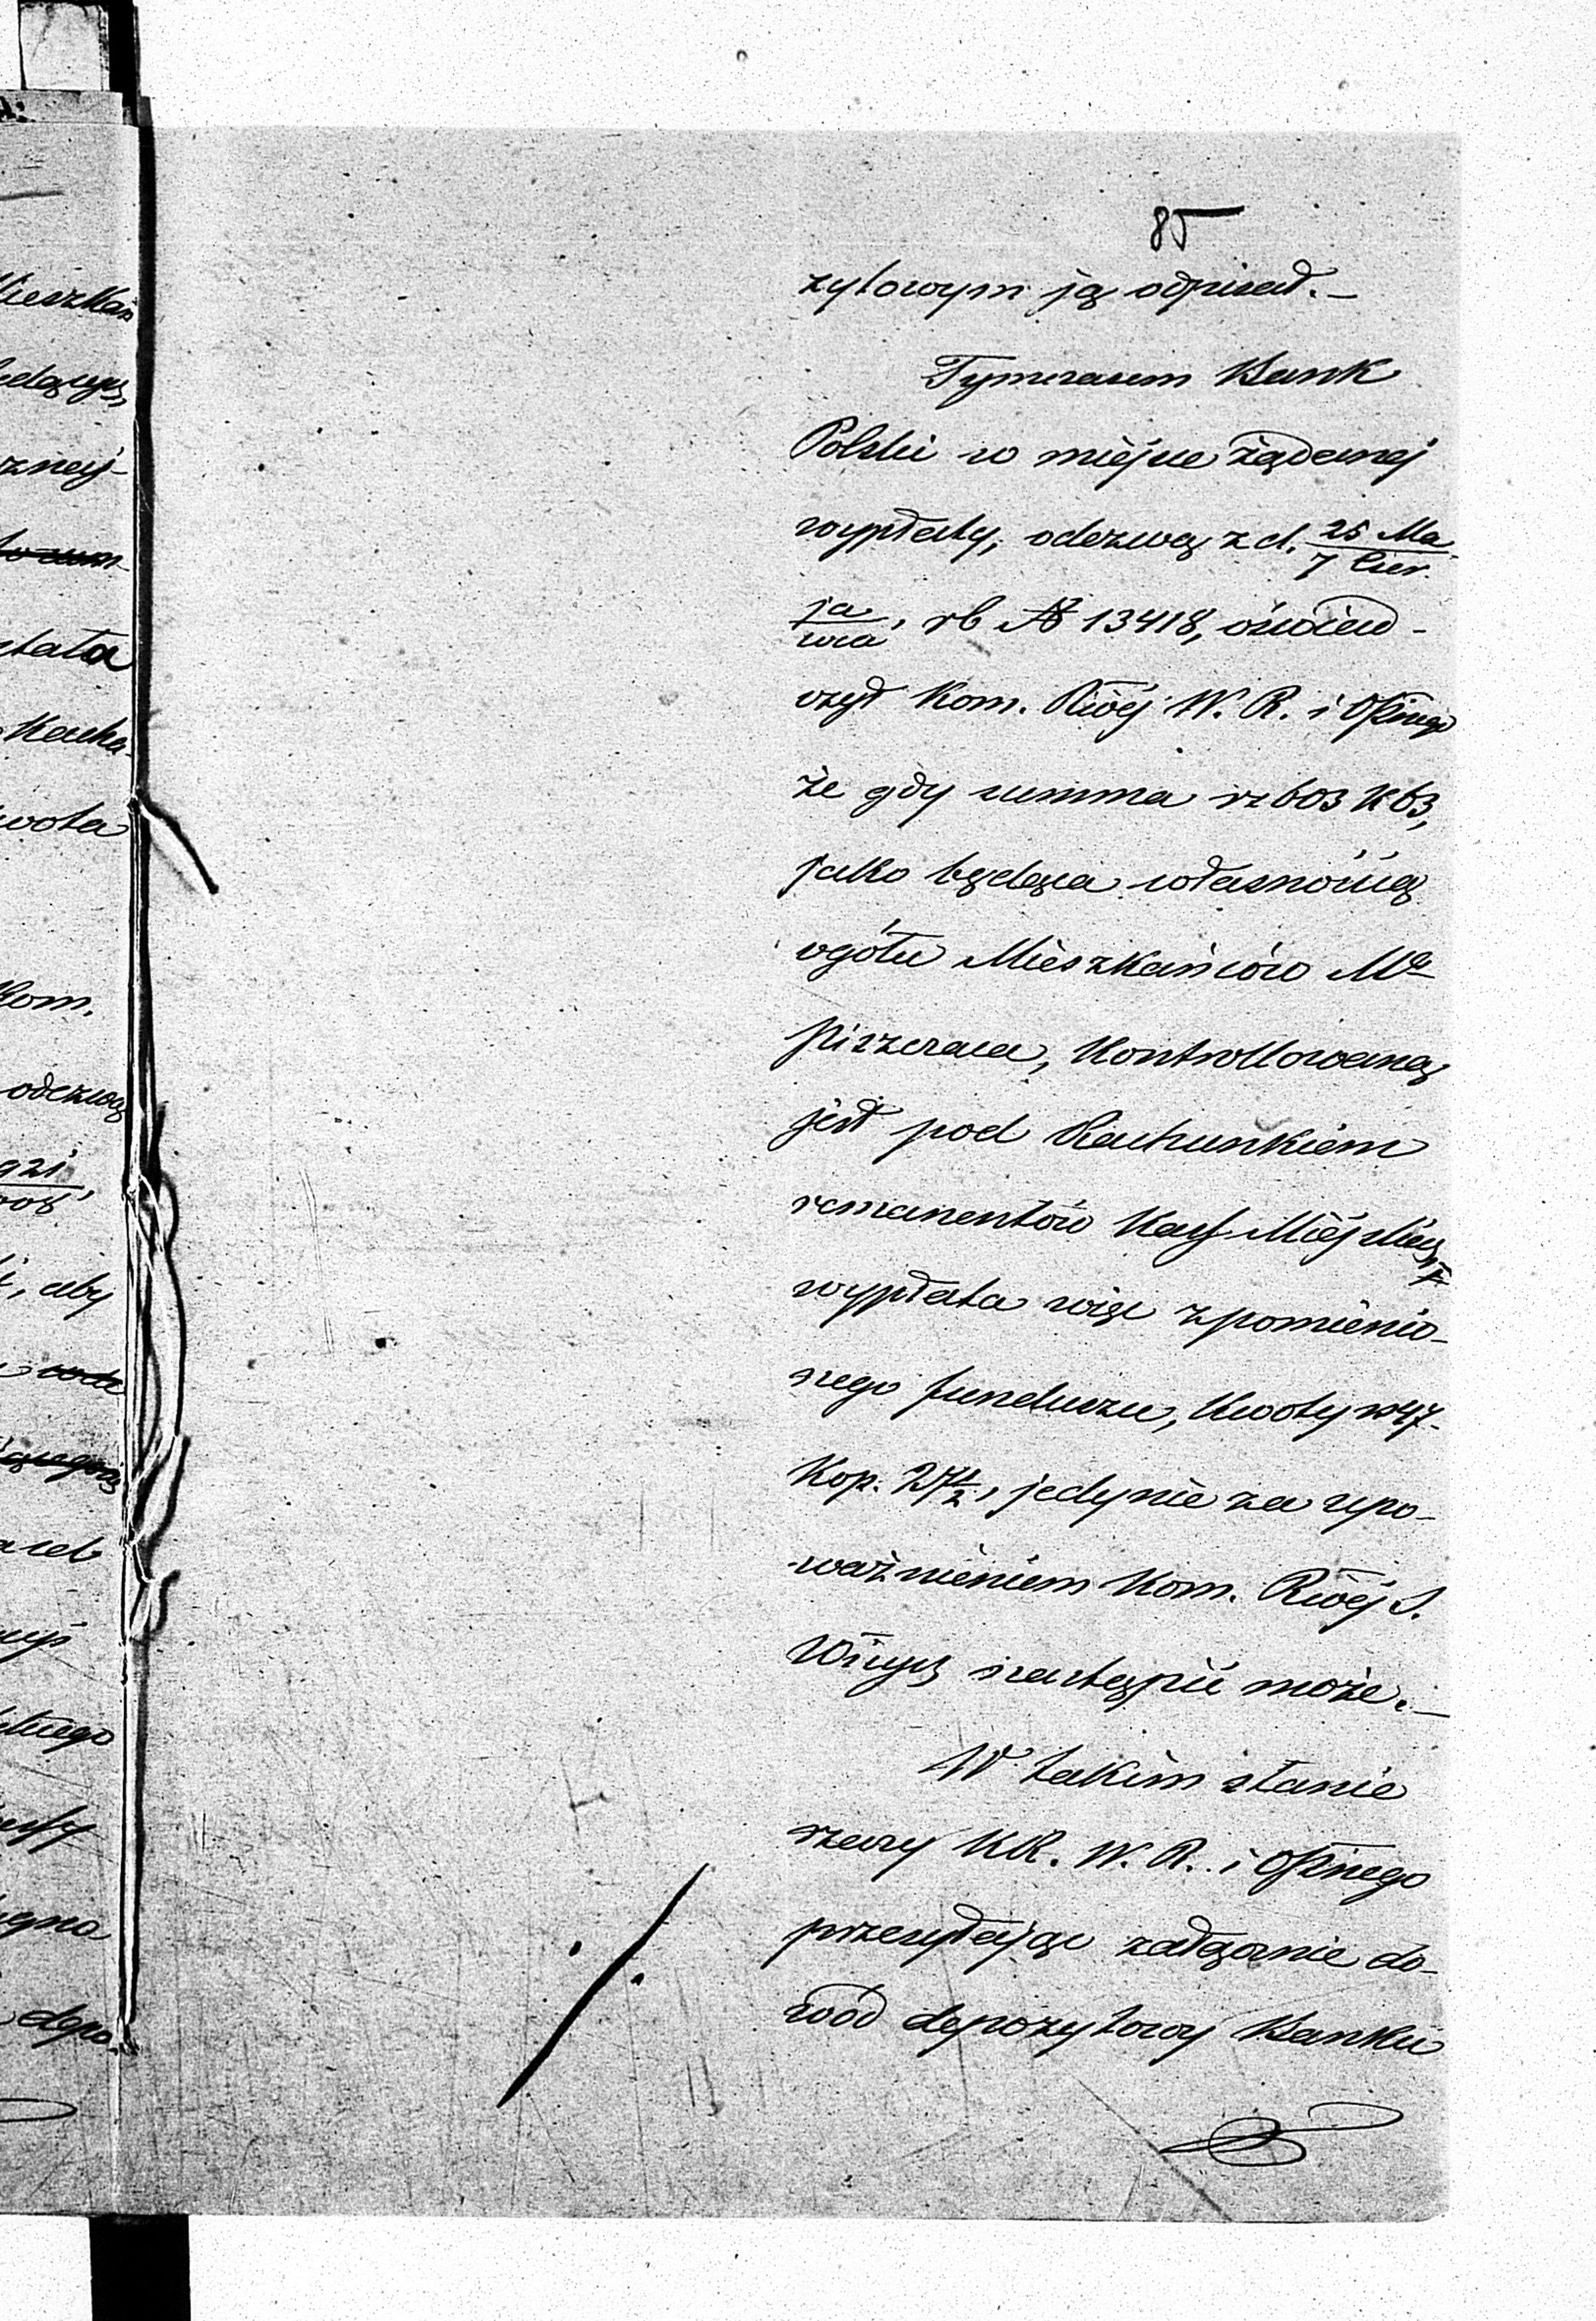 85
zytowym ją odpisał.—
Tymczasem Bank
Polski w miéjsce żądanej
wypłaty, odezwą z d. 25 Ma-
7 Czer.
ja
wca, rb № 13418, oświad-
czył Kom. Rźéj W. R. i OP̃nego
że gdy summa rs 603 K 63,
jako będąca własnością
ogółu Mieszkańców Mta
Piszczaca, Kontrollowaną
jest pod Rachunkiem
remanentów Kass Miéjskich
wypłata więc z pomienio-
nego funduszu, Kwoty rs 47-
Kop. 27½, jedynie za upo-
ważnieniem Kom. Rźéj S.
Wñych nastąpić może.—
W takim stanie
rzeczy KR. W. R. i OPñego
przesyłając załącznie do-
wód depozytowy Banku
ieszkań
zney
stała
wota
Kom.
odezwą
aby
depo-